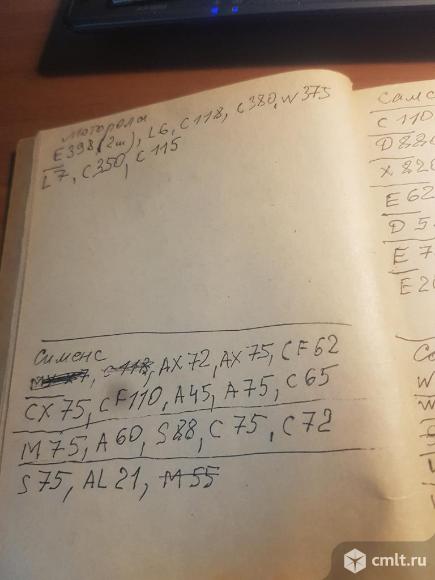 Моторола
E398(2ш), L6, C118, C380, W375
L7, C350, C115
Сименс
C118, AX72, AX75, CF62
CX75, CF110, A45, A75, C65
M75, A60, S88, C75, C72
S75, AL21, M55
Самс
C110
D820
X820
E62
D5
E7
E20
cmlt.ru